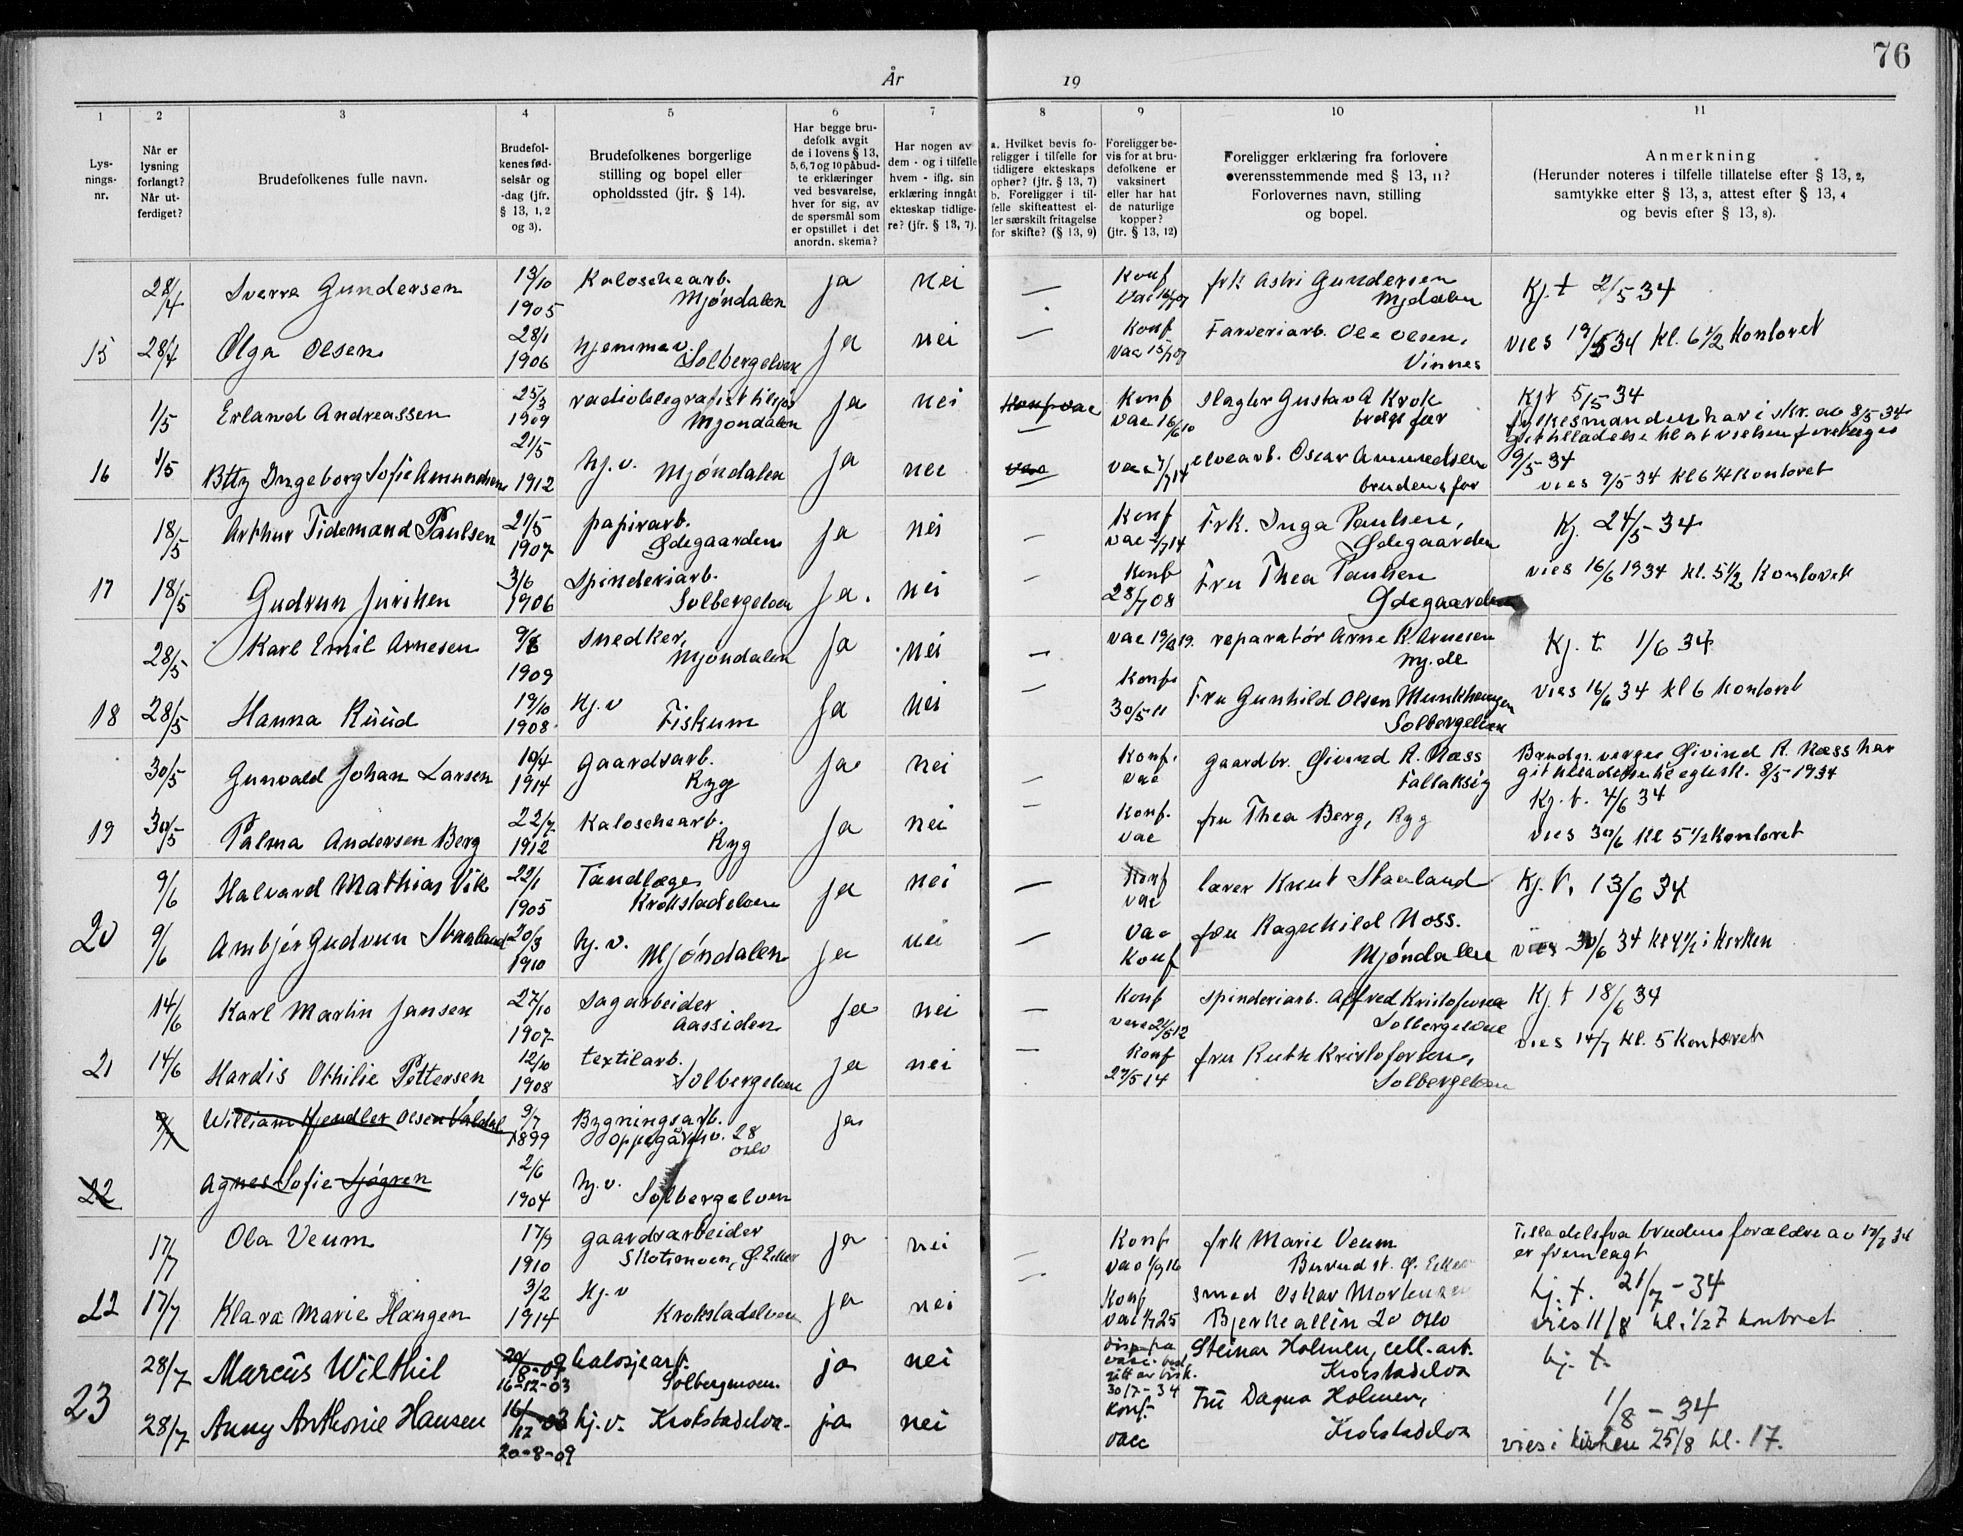 76
År 19
1 2 3 4 5 6 7 8 9 10 11
Lys-
nings-
nr.
Når er
lysning
forlangt?
Når ut-
ferdiget?
Brudefolkenes fulle navn.
Brudefol-
kenes fød-
selsår og
-dag (jfr.
§ 13, 1, 2
og 3).
Brudefolkenes borgerlige
stilling og bopel eller
opholdssted (jfr. § 14).
Har begge bru-
defolk avgit
de i lovens § 13,
5, 6, 7 og 10 påbud-
te erklæringer
ved besvarelse,
hver for sig, av
de spørsmål som
er opstillet i det
anordn. skema?
Har nogen av
dem - og i tilfelle
hvem - iflg. sin
erklæring inngåt
ekteskap tidlige-
re? (jfr. § 13, 7).
a. Hvilket bevis fo-
religger i tilfelle for
tidligere ekteskaps
ophør? (jfr. § 13, 7)
b. Foreligger i til-
felle skifteattest el-
ler særskilt fritagelse
for skifte? (§ 13, 9)
Foreligger be-
vis for at bru-
defolkene er
vaksinert
eller har hat
de naturlige
kopper?
(jfr. § 13, 12)
Foreligger erklæring fra forlovere
overensstemmende med § 13, 11?
Forlovernes navn, stilling
og bopel.
Anmerkning
(Herunder noteres i tilfelle tillatelse efter § 13, 2,
samtykke efter § 13, 3, attest efter § 13, 4
og bevis efter § 13, 8).
28/4 Sverre Gundersen 13/10 1905 Kaloschearb. Mjøndalen ja nei — Konf vac frk Astri Gundersen Mjdalen Kj. t 2/5 34
15 28/4 Olga Olsen 28/1 1906 hjemmev. Solbergelven ja nei — Konf vac 15/7 07 Farveriarb. Ole Olsen, Vinnes vies 19/5 34 Kl. 6 1/2 Kontoret
1/5 Erland Andreassen 25/3 1909 Mjøndalen ja nei Konf vac — Konf vac 16/6 10 slagter Gustav A Krok brudgs far Kjt 5/5-34
fylkesmanden har i skr. av 8/5-34
git tilladelse til at vielsen foretages
16 1/5 Btty Ingeborg Sofie Amundsen 21/5 1912 hj.v. Mjøndalen ja nei vac vac 7/7 14 elvearb. Oscar Amundsen brudens far 9/5-34
vies 9/5 34 Kl 6 1/4 Kontoret
18/5 Arthur Tidemand Paulsen 21/5 1907 papirarb. Ødegaarden ja nei — Konf vac 2/7 14 Frk. Inga Paulsen, Ødegaarden Kj. 24/5-34
17 18/5 Gudrun Juriksen 3/6 1906 Spinderiarb. Solbergelven Ja. nei — Konf 28/7 08 Fru Thea Paulsen Ødegaarden vies 16/6 1934 kl. 5 1/2 Kontoret
28/5 Karl Emil Arnesen 9/8 1909 Snedker, Mjøndalen ja nei — vac reparatør Arne K. Arnesen Mj.dl Kj. t. 1/6 34
18 28/5 Hanna Ruud 19/10 1908 Hj.v Fiskum Ja nei — Konf. 30/5 11 Fru Gunhild Olsen Munkhaugen Solbergelven vies 16/6 34 Kl 6 Kontoret
30/5 Gunvald Johan Larsen 10/4 1914 Gaardsarb. Ryg ja nei — Konf. vac Gaardbr. Øivind R. Næss Fallaksøy Brudgs. verge Øivind R. Næss har
git tilladelse til egtesk. 8/5-1934
Kj. t. 4/6 34
19 30/5 Palma Andersen Berg 22/7 1912 Kaloschearb. Ryg ja nei — Konf. vac fru Thea Berg, Ryg vies 30/6 Kl 5 1/2 Kontoret
9/6 Halvard Mathias Vik 22/1 1905 Tandlæge Krokstadelven ja nei — Konf vac lærer Knut Staaland Kj. t. 13/6 34
20 9/6 Ambjør Gudrun Staaland 20/3 1910 hj.v. Mjøndalen ja nei — vac Konf fru Ragnhild Moss. Mjøndalen vies 30/6 34 Kl 4 1/2 i Kirken
14/6 Karl Martin Jansen 27/10 1907 Sagarbeider Aassiden Ja nei — Konf vac 21/5 12 Spinderiarb. Alfred Kristofersen Solbergelven Kj. t 18/6 34
21 14/6 Hardis Othilie Pettersen 12/10 1908 textilarb. Solbergelven ja nei — Konf 27/5 14 fru Ruth Kristofersen, Solbergelven vies 14/7 Kl. 5 Kontoret
9/7 William Hjendler Olsen Valdal 9/7 1899 Bygningsarb. Oppegårdv. 28 Oslo ja
22 Agnes Sofie Sjøgren 2/6 1904 hj.v. Solbergelven
17/7 Ola Veum 17/9 1910 Gaardsarbeider Skotsmoen, Ø. Eiker ja nei — Konf vac 1/9 16 frk Marie Veum Burud st. Ø. Eiker Tilladelse fra brudens forældre av 17/7 34
er fremlagt
kj. t. 21/7-34
22 17/7 Klara Marie Haugen 3/2 1914 Hj.v Krokstadelven ja nei — Konf smed Oskar Mortensen Bjerkealleen 20 Oslo vies 11/8 kl. 1/2 7 kontoret
28/7 Marcus Wilthil 20/8-09 16-12-03 kalosjearb. Solbergmoen. ja nei disp. fra vacc. bed. av bisk. 30/7-34 Steinar Holmen, cell.-arb. Krokstadelva kj. t.
1/8-34
23 28/7 Anny Anthonie Hansen 16/12 03 20-8-09 hj.v. Krokstadelva. ja nei konf. vacc Fru Dagna Holmen, Krokstadelva vies i kirken 25/8 kl. 17.